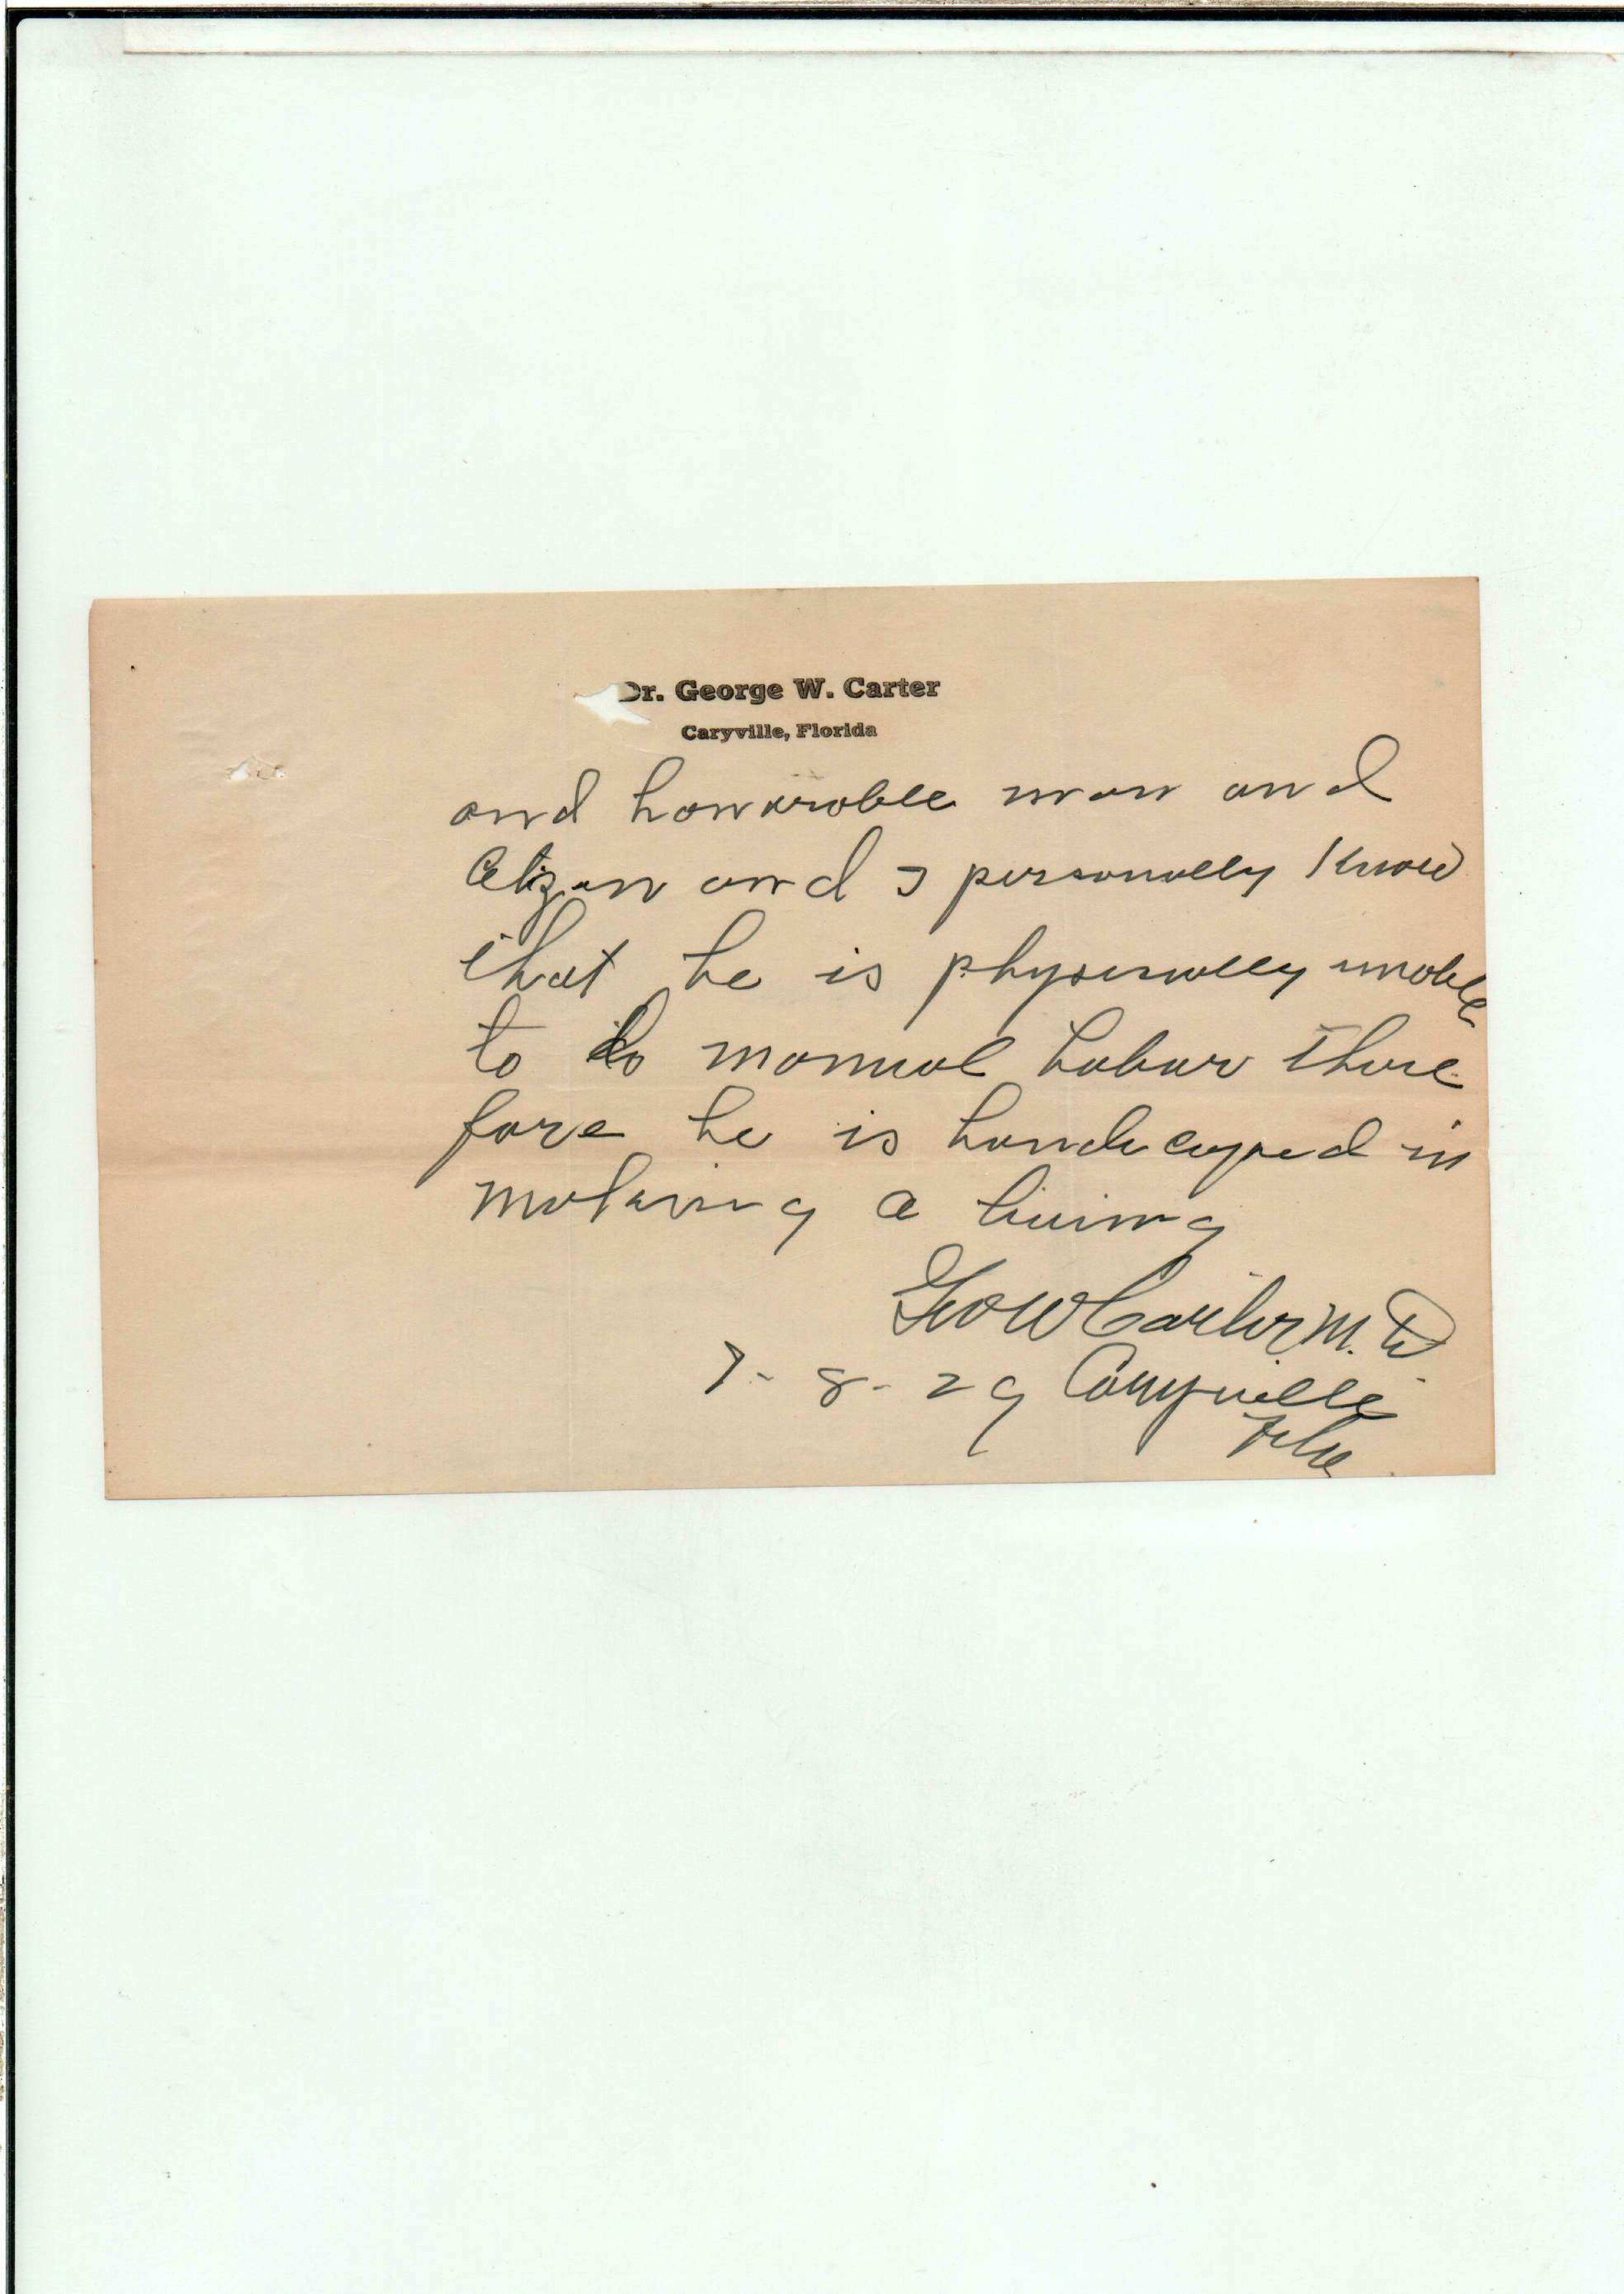 Dr. George W. Carter
Caryville, Florida
and honarable man and
Citizen and I personally Know
that he is physically unable
to do manual Labar there
fore he is handicaped in
making a living
Geo W Carter M. D
7-8-29 Caryville
Fla